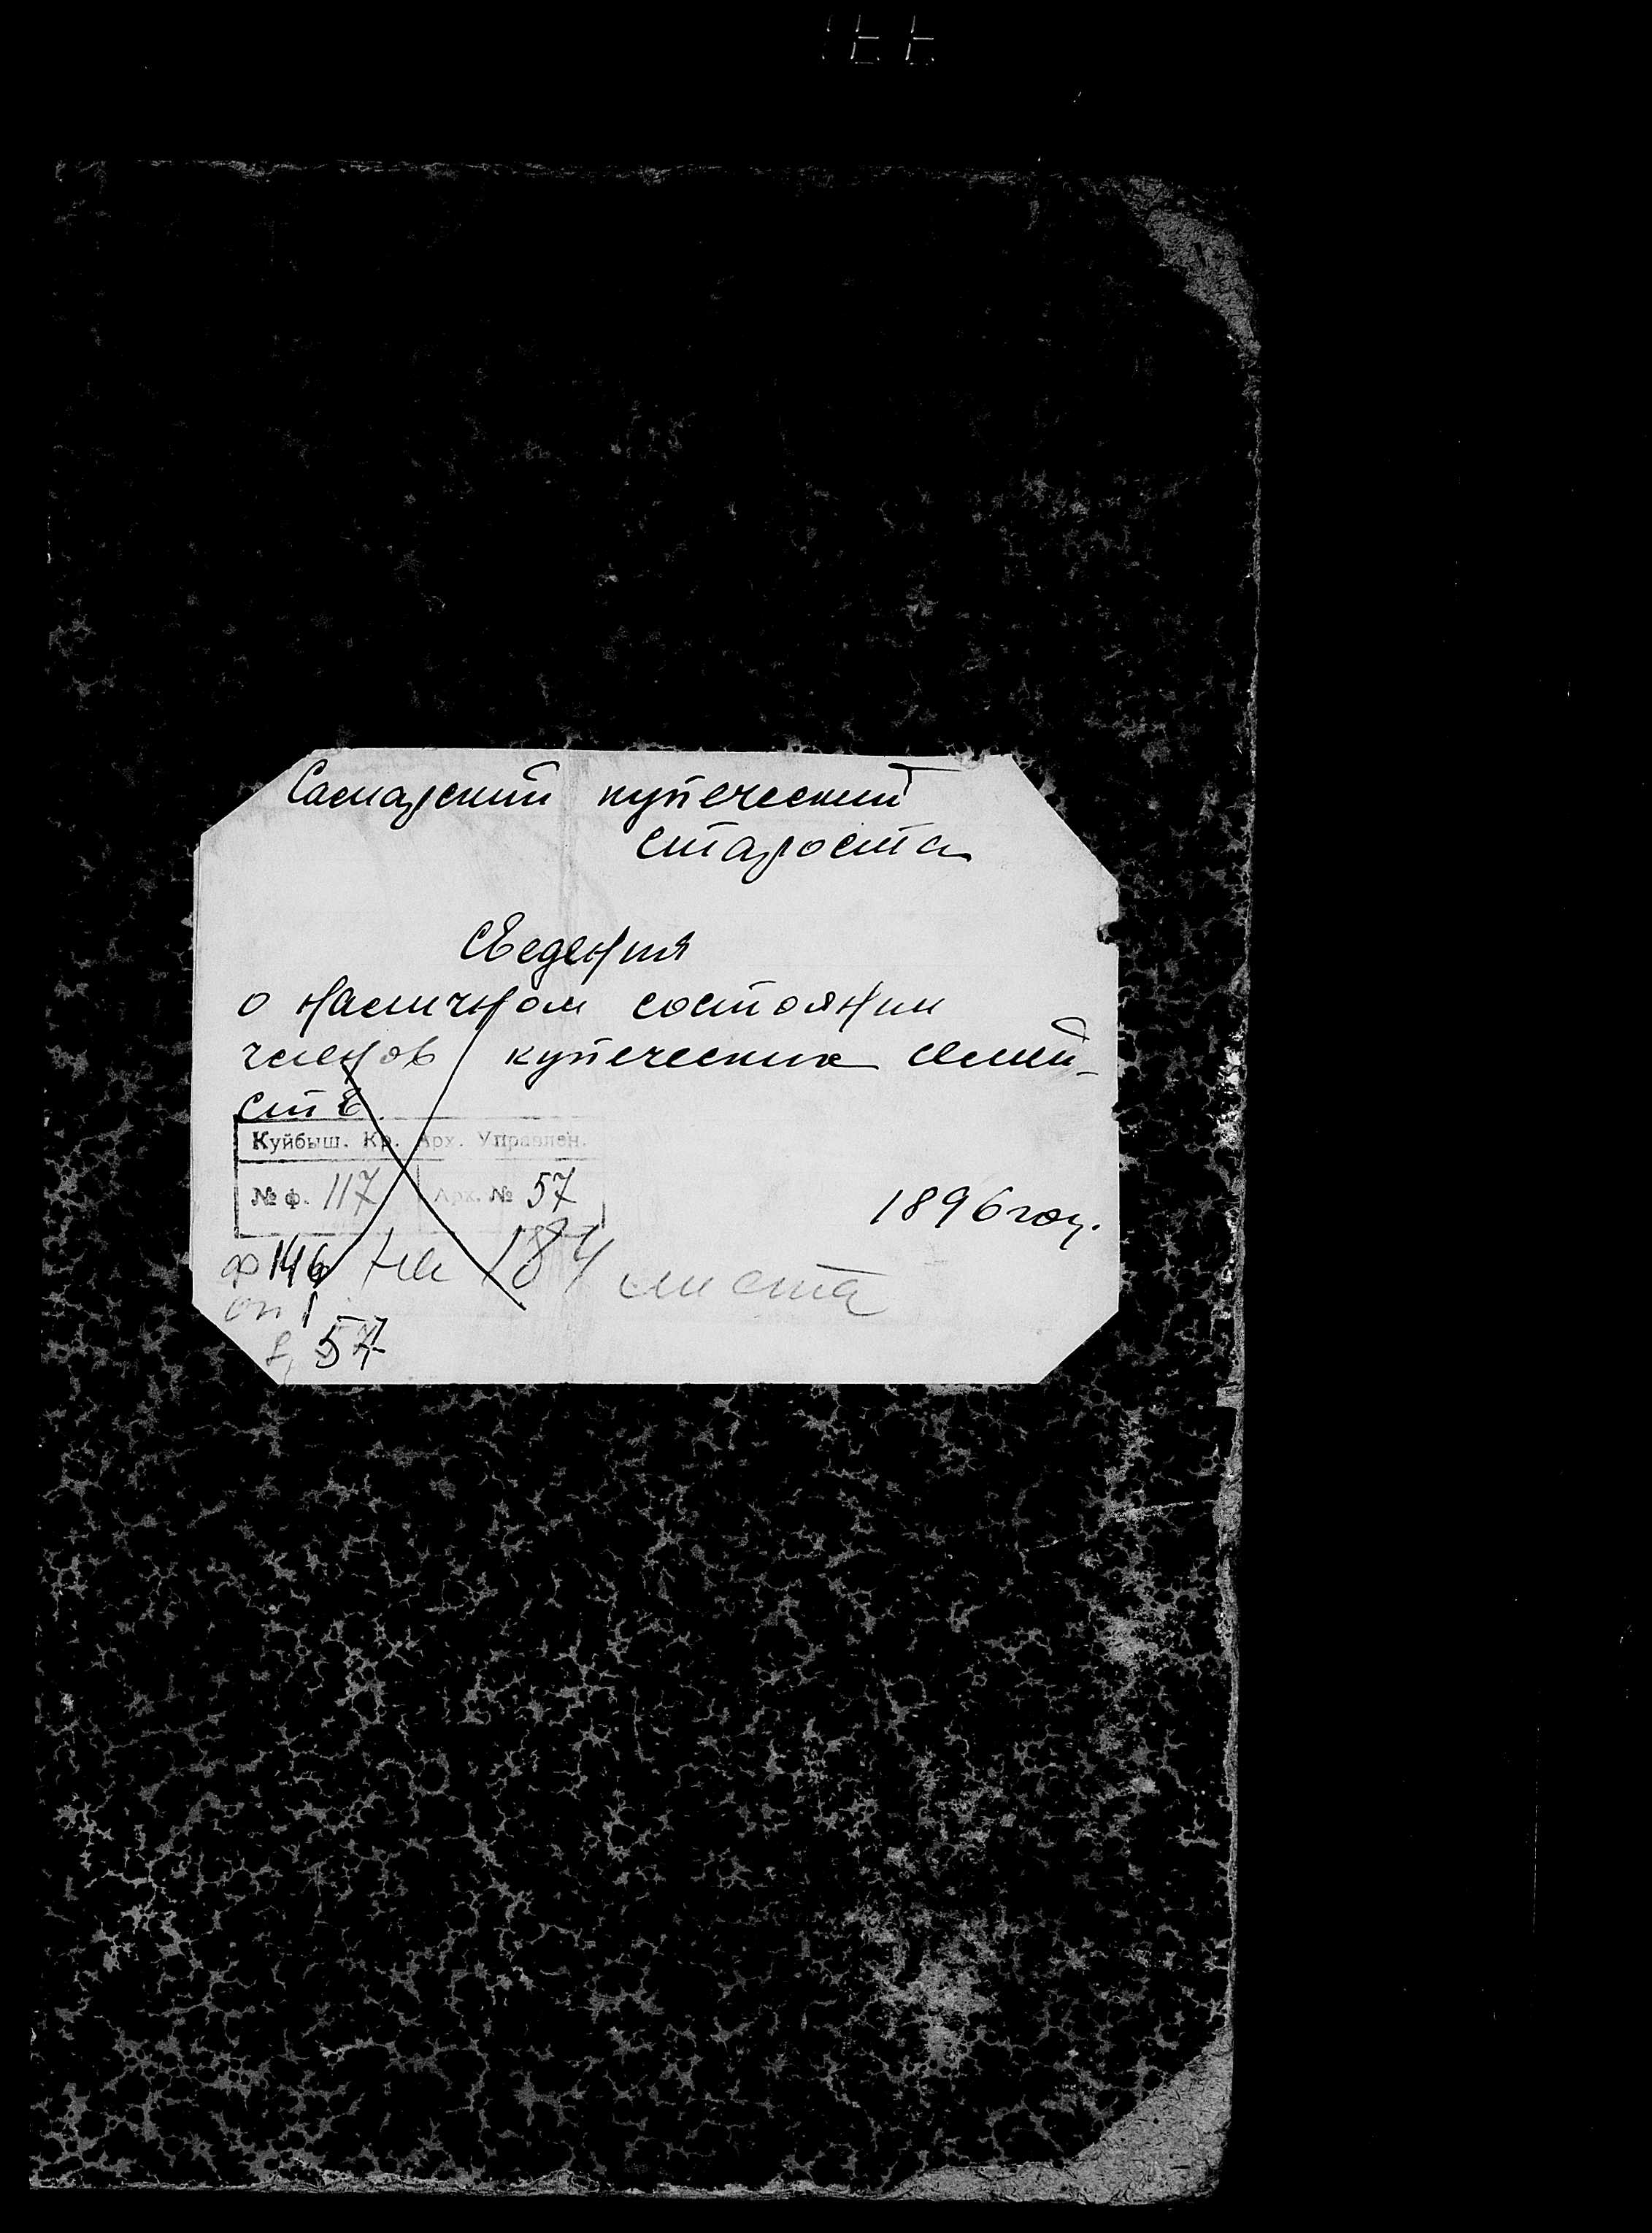 Самарский купеческий
староста
Сведения
о наличном состоянии
членов купеческих семей-
ств.
Куйбыш. Кр. Арх. Управлен.
№ ф. 117 Арх. № 57
1896 год.
ф 146 на 184 листа
оп 1
д 57